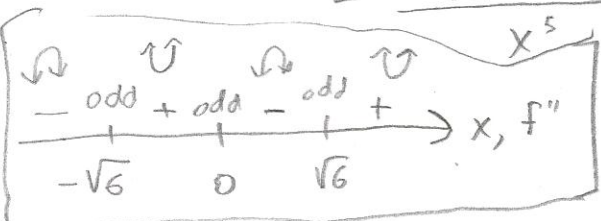 x⁵
− odd + odd − odd +
x, f"
−√6 0 √6